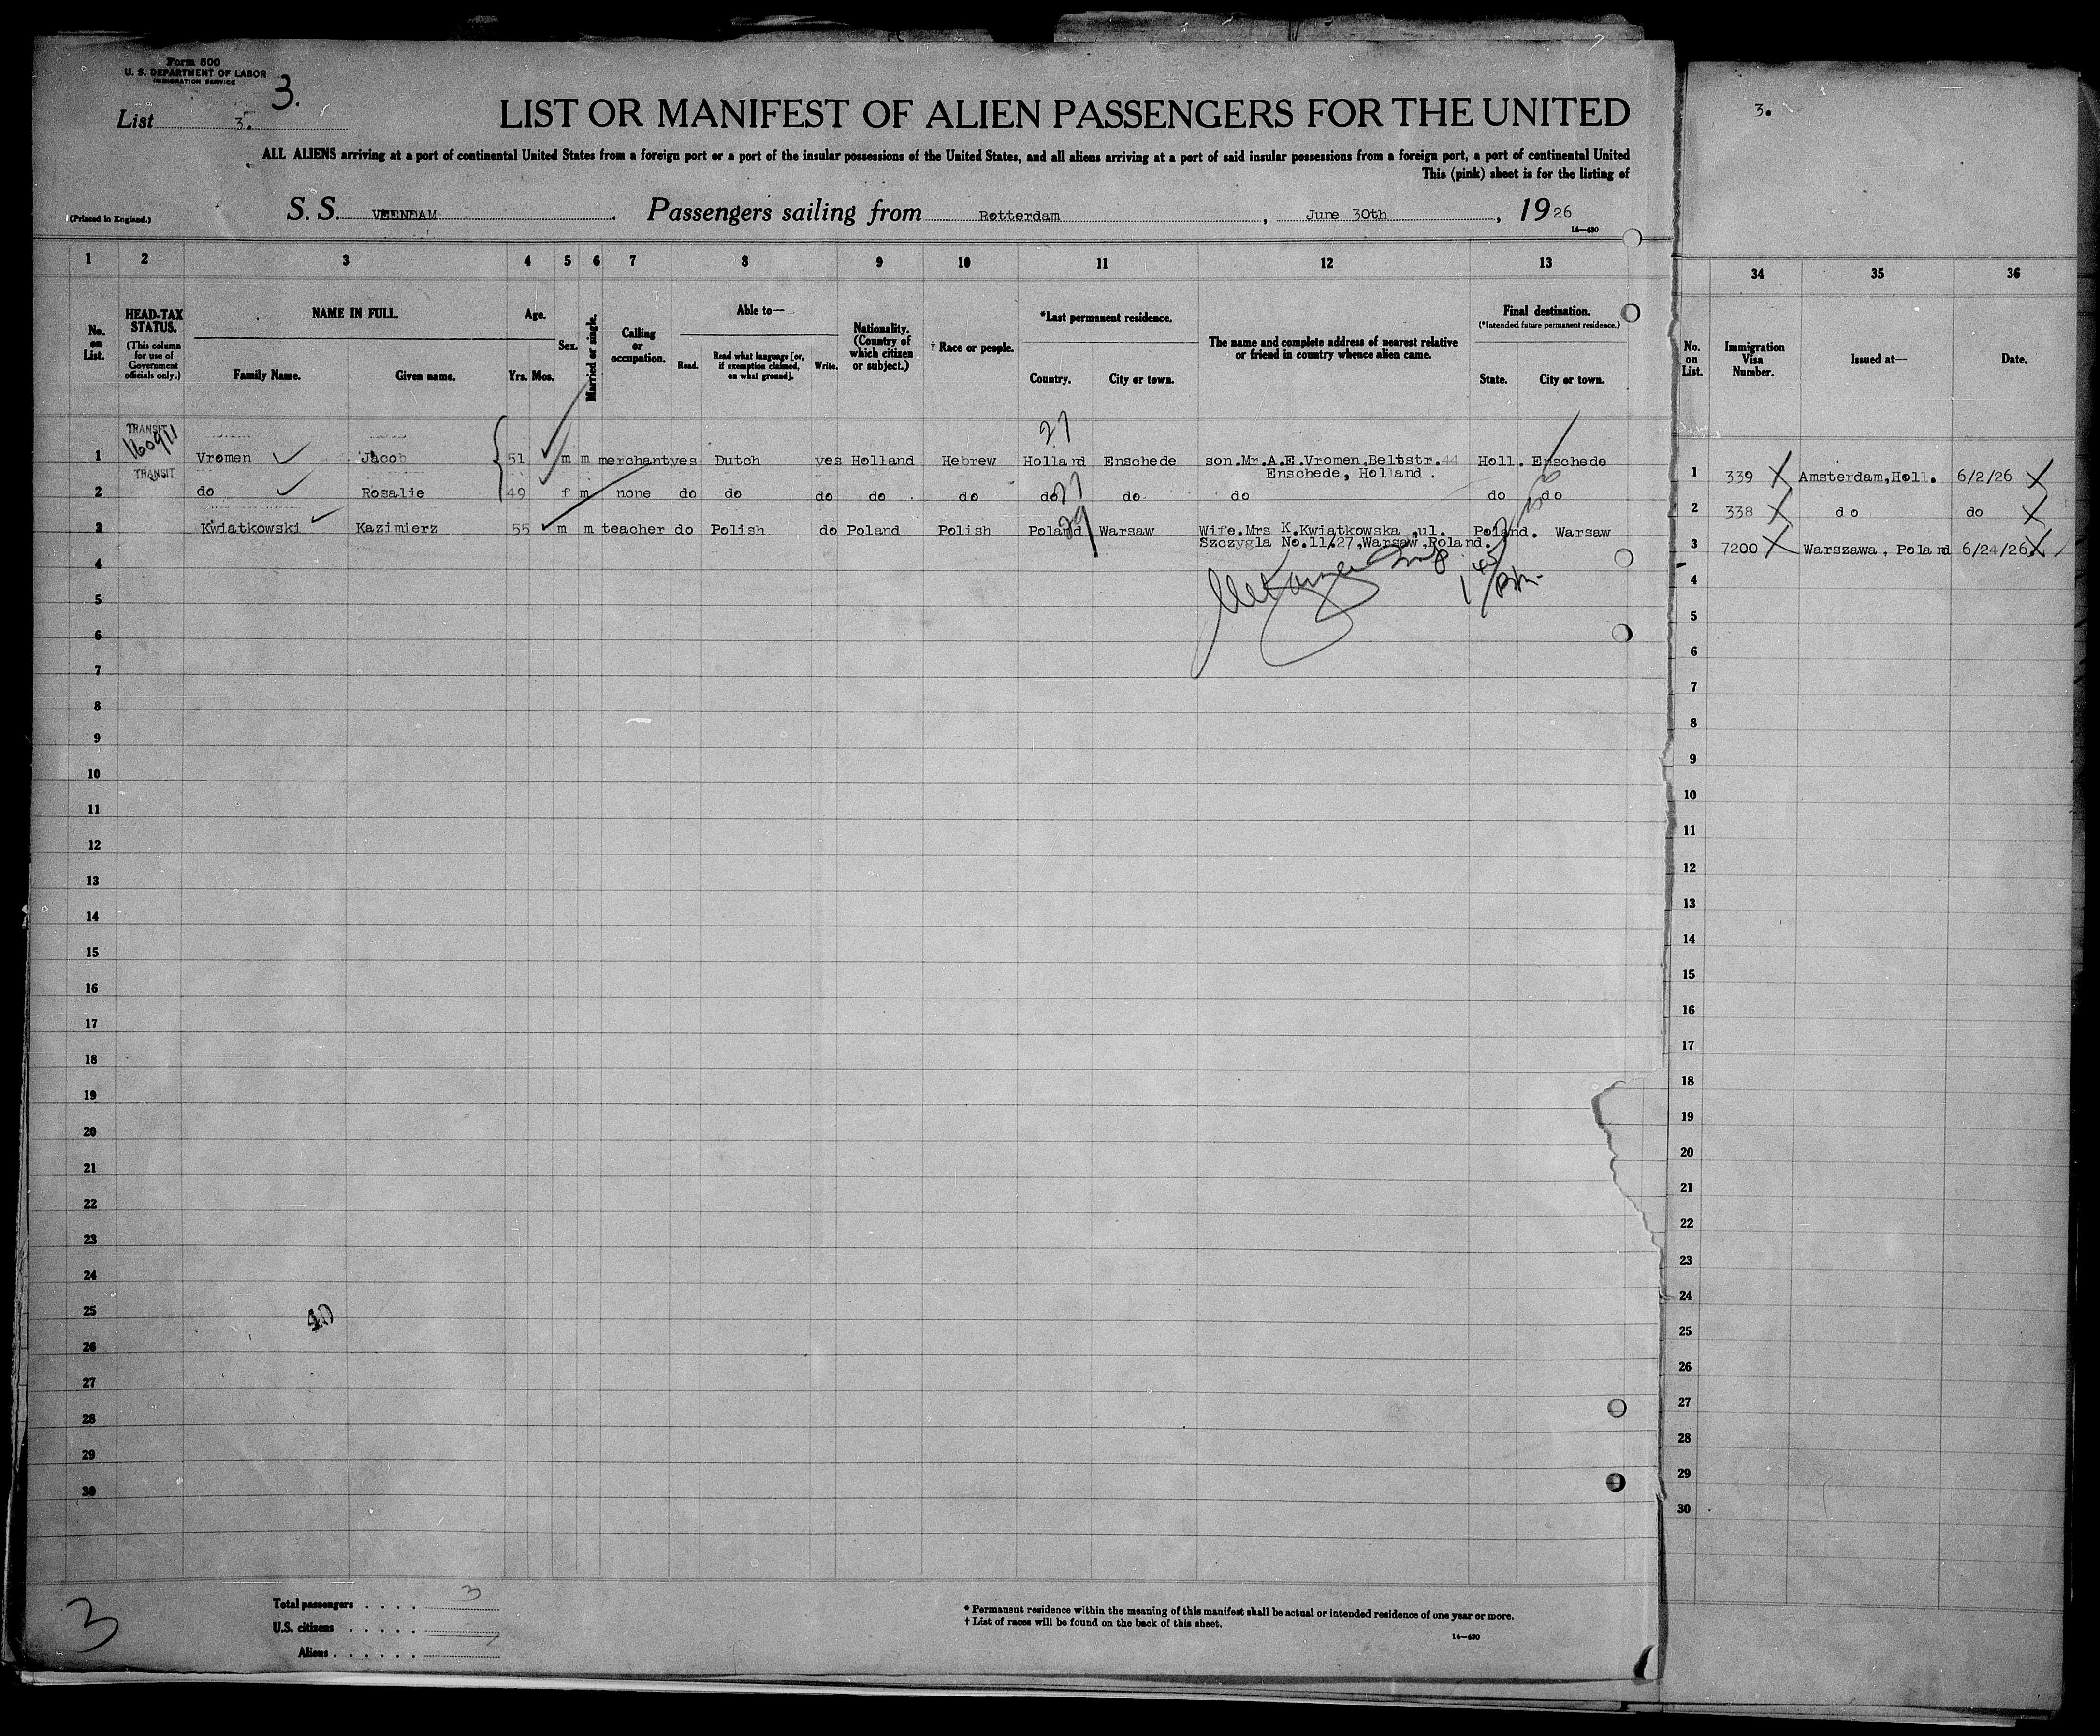 Form 500
U. S. DEPARTMENT OF LABOR
IMMIGRATION SERVICE
3.
List 3.
LIST OR MANIFEST OF ALIEN PASSENGERS FOR THE UNITED
3.
ALL ALIENS arriving at a port of continental United States from a foreign port or a port of the insular possessions of the United States, and all aliens arriving at a port of said insular possessions from a foreign port, a port of continental United
This (pink) sheet is for the listing of
(Printed in England.)
S. S. VEENDAM. Passengers sailing from Rotterdam, June 30th, 1926
14—430
1 2 3 4 5 6 7 8 9 10 11 12 13 34 35 36
No. on List.
HEAD-TAX STATUS. (This column for use of Government officials only.)
NAME IN FULL.
Family Name. Given name.
Age.
Yrs. Mos.
Sex.
Married or single.
Calling or occupation.
Able to—
Read. Read what language [or, if exemption claimed, on what ground]. Write.
Nationality. (Country of which citizen or subject.)
† Race or people.
*Last permanent residence.
Country. City or town.
The name and complete address of nearest relative or friend in country whence alien came.
Final destination.
(*Intended future permanent residence.)
State. City or town.
No. on List.
Immigration Visa Number.
Issued at—
Date.
TRANSIT
160911
27
1 Vromen Jacob 51 m m merchant yes Dutch yes Holland Hebrew Holland Enschede son.Mr.A.E.Vromen,Beltstr.44 Holl. Enschede 1 339 X Amsterdam,Holl. 6/2/26 X
Enschede, Holland.
TRANSIT
27
2 do Rosalie 49 f m none do do do do do do do do do do 2 338 X do do X
29
3 Kwiatkowski Kazimierz 55 m m teacher do Polish do Poland Polish Poland Warsaw Wife.Mrs K.Kwiatkowska,ul. Poland. Warsaw 3 7200 X Warszawa, Poland 6/24/26 X
Szczygla No.11/27,Warsaw,Poland.
4 4
5 5
6 6
7 7
8 8
9 9
10 10
11 11
12 12
13 13
14 14
15 15
16 16
17 17
18 18
19 19
20 20
21 21
22 22
23 23
24 24
25 25
40
26 26
27 27
28 28
29 29
30 30
3
Total passengers . . . . 3
U.S. citizens . . . . .
Aliens . . . . . .
* Permanent residence within the meaning of this manifest shall be actual or intended residence of one year or more.
† List of races will be found on the back of this sheet.
14—430